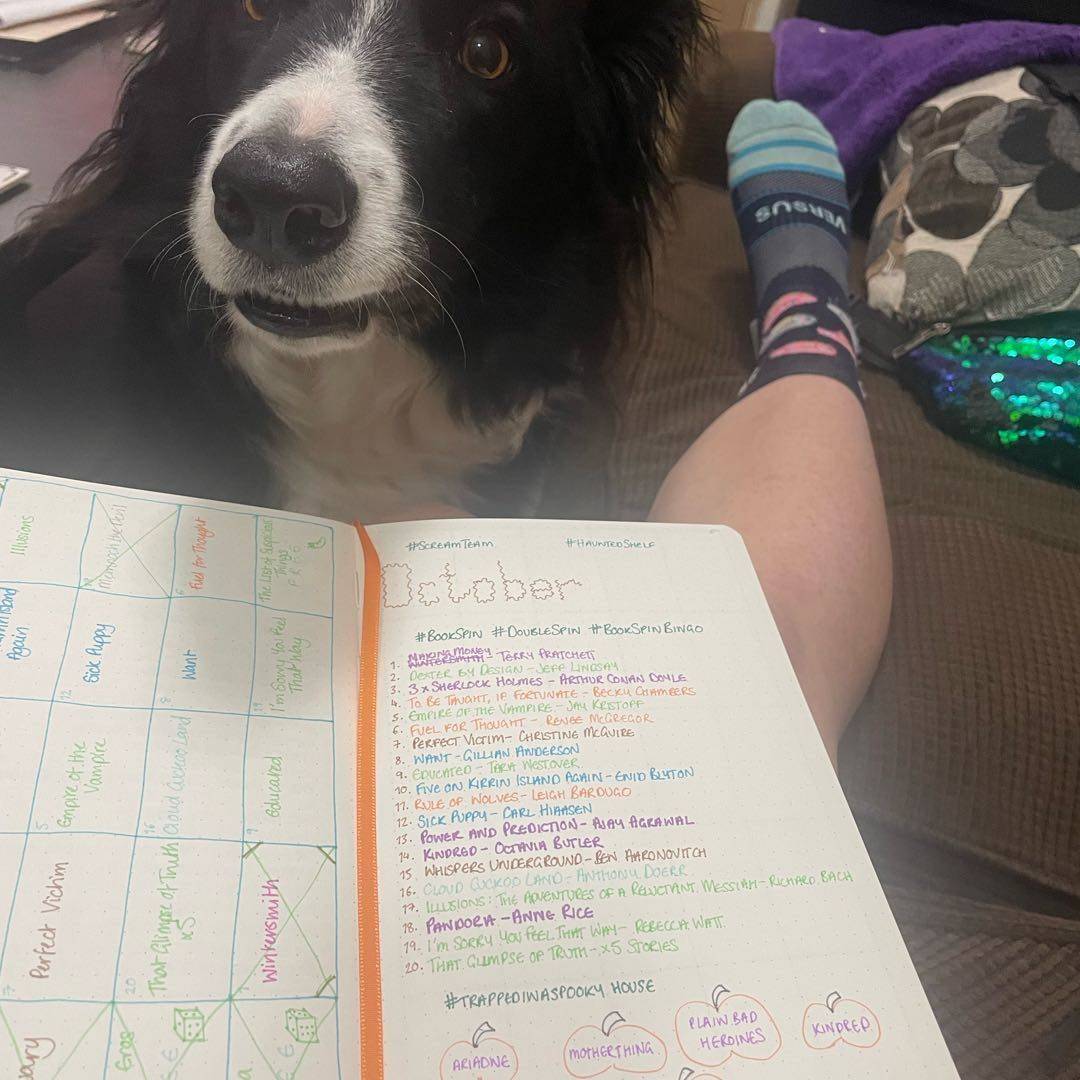 VERSUS
Illusions
Again
Sick Puppy
12
Fuel for Thought
6
Want
8
The List of Suspicious
Things
F R E O
I'm Sorry You Feel
That Way
19
Empire of the
Vampire
5
Cloud Cuckoo Land
16
Educated
9
Perfect Victim
7
That Glimpse of Truth
x5
20
Wintersmith
Eros
#SCREAMTEAM #HAUNTEDSHELF
October
#BOOKSPIN #DOUBLESPIN #BOOKSPINBINGO
1. MAKING MONEY WINTERSMITH - TERRY PRATCHETT
2. DEXTER BY DESIGN - JEFF LINDSAY
3. 3 x SHERLOCK HOLMES - ARTHUR CONAN DOYLE
4. TO BE TAUGHT, IF FORTUNATE - BECKY CHAMBERS
5. EMPIRE OF THE VAMPIRE - JAY KRISTOFF
6. FUEL FOR THOUGHT - RENEE McGREGOR
7. PERFECT VICTIM - CHRISTINE McGUIRE
8. WANT - GILLIAN ANDERSON
9. EDUCATED - TARA WESTOVER
10. FIVE ON KIRRIN ISLAND AGAIN - ENID BLYTON
11. RULE OF WOLVES - LEIGH BARDUGO
12. SICK PUPPY - CARL HIAASEN
13. POWER AND PREDICTION - AJAY AGRAWAL
14. KINDRED - OCTAVIA BUTLER
15. WHISPERS UNDERGROUND - BEN AARONOVITCH
16. CLOUD CUCKOO LAND - ANTHONY DOERR
17. ILLUSIONS: THE ADVENTURES OF A RELUCTANT MESSIAH - RICHARD BACH
18. PANDORA - ANNE RICE
19. I'M SORRY YOU FEEL THAT WAY - REBECCA WAIT
20. THAT GLIMPSE OF TRUTH - x5 STORIES
#TRAPPEDINASPOOKY HOUSE
ARIADNE
MOTHERTHING
PLAIN BAD
HEROINES
KINDRED